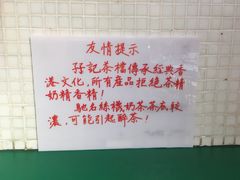 友情提示
孖記茶檔傳承經典香
港文化，所有產品拒絕茶精
奶精香精！
馳名絲襪奶茶茶底較
濃，可能引起醉茶！